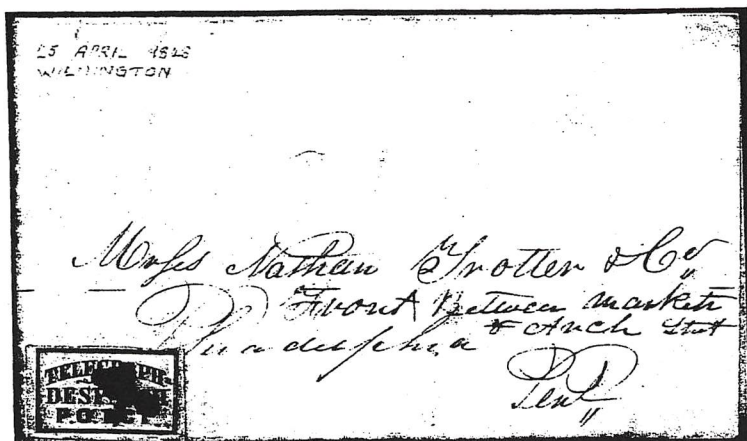 25 APRIL
WILMINGTON
Messs Nathan Trotter & Co
Front Between Market
& Arch Stret
Philadelphia
TELEGRAPH
P.O.